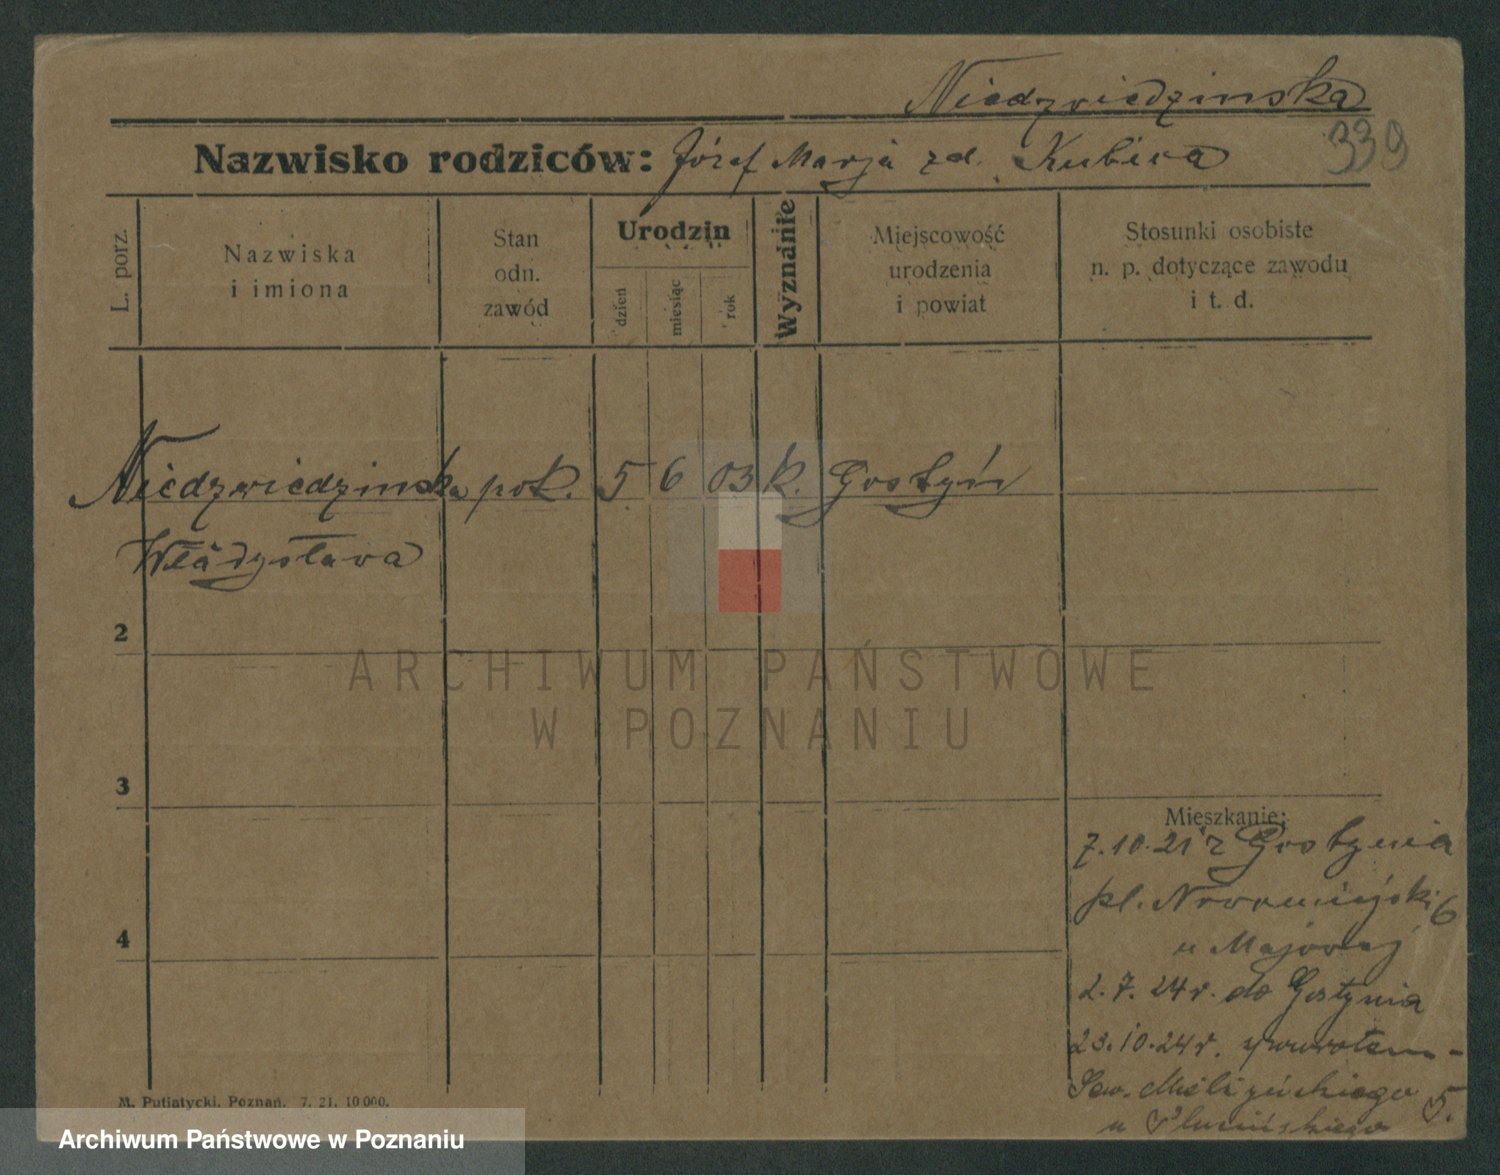 Niedzwiedzinska
339
Nazwisko rodziców: Józef Marja zd. Kubica
L. porz.
Nazwiska
i imiona
Stan
odn.
zawód
Urodzin
dzień
miesiąc
rok
Wyznanie
Miejscowość
urodzenia
i powiat
Stosunki osobiste
n. p. dotyczące zawodu
i t. d.
Niedzwiedzinska pok. 5 6 03 k. Gostyń
Władysława
2
3
4
Mieszkanie:
7.10.21 z Gostynia
pl. Nowomiejski 6
u Majowej
2.7.24 r. do Gostynia
23.10.24 r. z powrotem
Sew. Mielżyńskiego 5.
u
M. Putiatycki, Poznań. 7. 21. 10 000.
ARCHIWUM PAŃSTWOWE
W POZNANIU
Archiwum Państwowe w Poznaniu